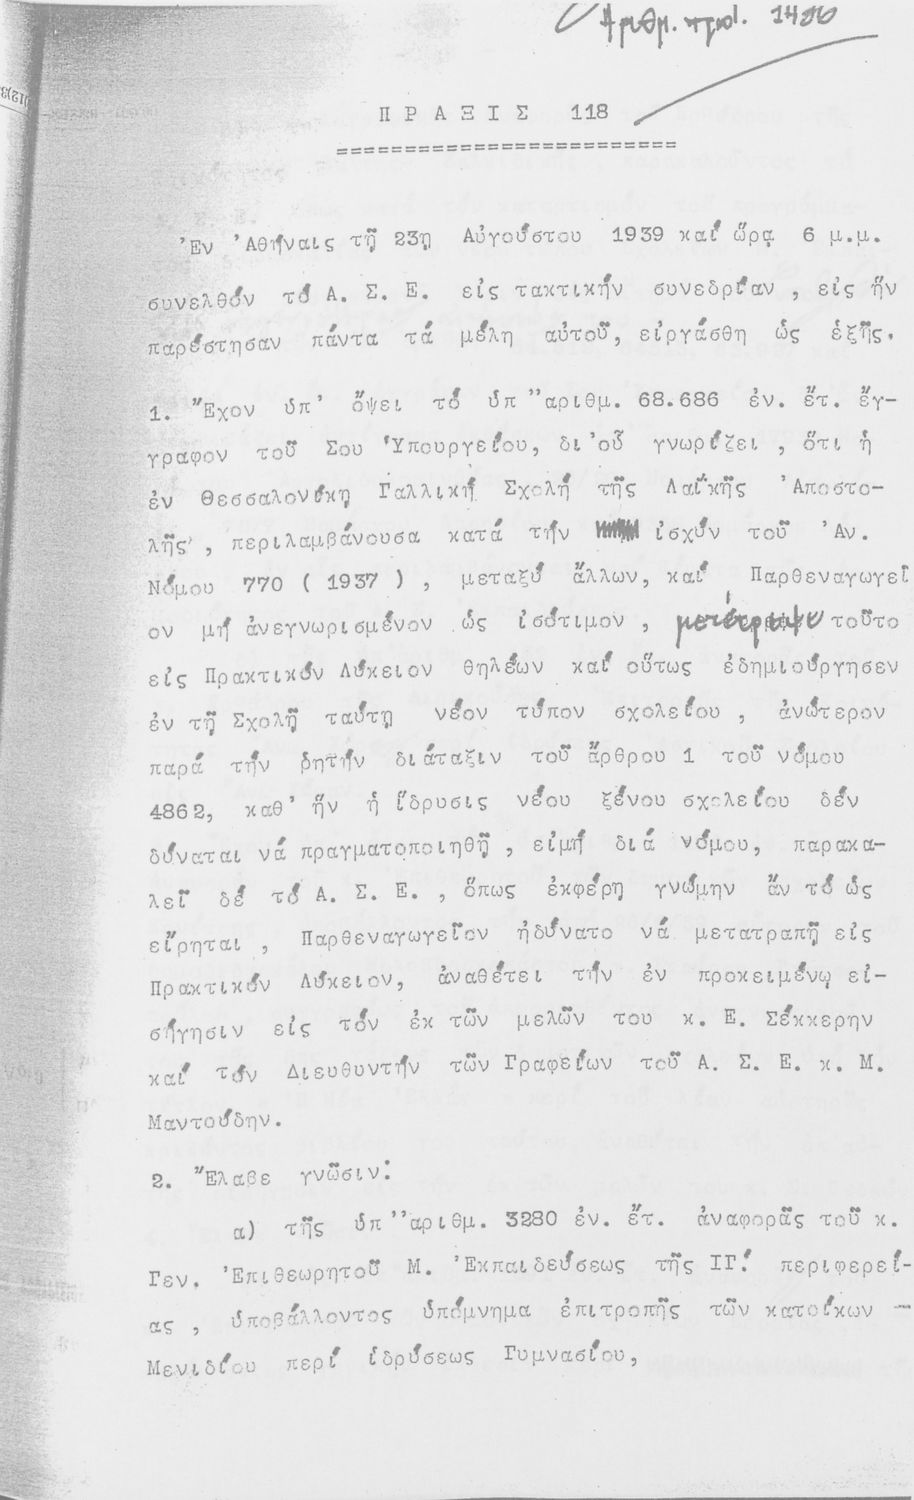 Ἀριθμ. πρωτ. 1486
ΠΡΑΞΙΣ 118
==========================
Ἐν Ἀθήναις τῇ 23η Αὐγούστου 1939 καί ὥρᾳ 6 μ.μ.
συνελθόν τό Α. Σ. Ε. εἰς τακτικήν συνεδρίαν , εἰς ἥν
παρέστησαν πάντα τά μέλη αὐτοῦ, εἰργάσθη ὡς ἑξῆς.
1. Ἔχον ὑπ' ὄψει τό ὑπ "αριθμ. 68.686 ἐν. ἔτ. ἔγ-
γραφον τοῦ Σου Ὑπουργείου, δι'οὗ γνωρίζει , ὅτι ἡ
ἐν Θεσσαλονίκῃ Γαλλική Σχολή τῆς Λαϊκῆς Ἀποστο-
λῆς' , περιλαμβάνουσα κατά τήν ἰσχύν τοῦ Ἀν.
Νόμου 770 ( 1937 ) , μεταξύ ἄλλων, καί Παρθεναγωγεῖ
ον μή ἀνεγνωρισμένον ὡς ἰσότιμον , μετέτρεψε τοῦτο
εἰς Πρακτικόν Λύκειον θηλέων καί οὕτως ἐδημιούργησεν
ἐν τῇ Σχολῇ ταύτῃ νέον τύπον σχολείου , ἀνώτερον
παρά τήν ῥητήν διάταξιν τοῦ ἄρθρου 1 τοῦ νόμου
4862, καθ' ἥν ἡ ἵδρυσις νέου ξένου σχολείου δέν
δύναται νά πραγματοποιηθῇ , εἰμή διά νόμου, παρακα-
λεῖ δέ τό Α. Σ. Ε. , ὅπως ἐκφέρῃ γνώμην ἄν τό ὡς
εἴρηται , Παρθεναγωγεῖον ἠδύνατο νά μετατραπῇ εἰς
Πρακτικόν Λύκειον, ἀναθέτει τήν ἐν προκειμένῳ εἰ-
σήγησιν εἰς τόν ἐκ τῶν μελῶν του κ. Ε. Σέκκερην
καί τόν Διευθυντήν τῶν Γραφείων τοῦ Α. Σ. Ε. κ. Μ.
Μαντούδην.
2. Ἔλαβε γνῶσιν:
α) τῆς ὑπ "αριθμ. 3280 ἐν. ἔτ. ἀναφορᾶς τοῦ κ.
Γεν. Ἐπιθεωρητοῦ Μ. Ἐκπαιδεύσεως τῆς ΙΓ' περιφερεί-
ας , ὑποβάλλοντος ὑπόμνημα ἐπιτροπῆς τῶν κατοίκων -
Μενιδίου περί ἱδρύσεως Γυμνασίου,